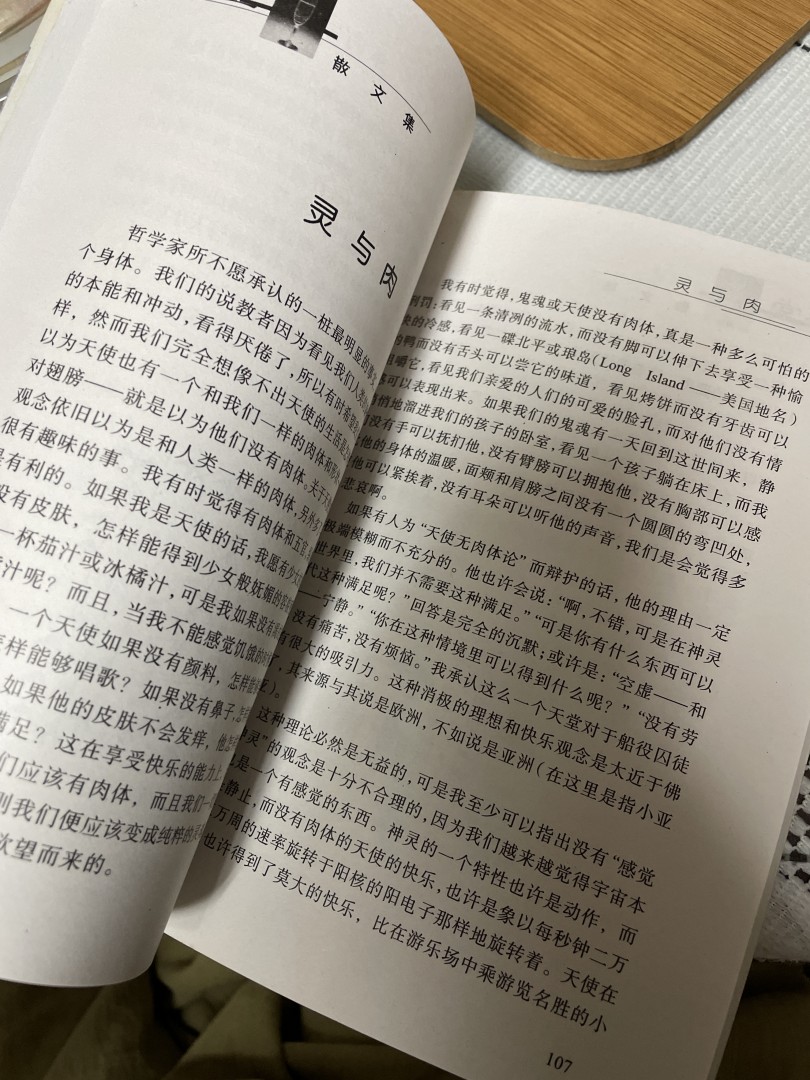 散文集
灵与肉
哲学家所不愿承认的一桩最明显的事实
个身体。我们的说教者因为看见我们人类
的本能和冲动，看得厌倦了，所以有时希望
样，然而我们完全想像不出天使的生活是
以为天使也有一个和我们一样的肉体和
对翅膀——就是以为他们没有肉体。关于天
观念依旧以为是和人类一样的肉体，另外
很有趣味的事。我有时觉得有肉体和五官
是有利的。如果我是天使的话，我愿有少
没有皮肤，怎样能得到少女般妩媚的
一杯茄汁或冰橘汁，可是我如果没有
汁呢？而且，当我不能感觉饥饿的
一个天使如果没有颜料，怎样能
怎样能够唱歌？如果没有鼻子，怎
如果他的皮肤不会发痒，他怎
满足？这在享受快乐的能力上
们应该有肉体，而且我们一
则我们便应该变成纯粹的
欲望而来的。
灵与肉
我有时觉得，鬼魂或天使没有肉体，真是一种多么可怕的
刑罚：看见一条清冽的流水，而没有脚可以伸下去享受一种愉
快的冷感，看见一碟北平或琅岛(Long Island——美国地名)
的鸭而没有舌头可以尝它的味道，看见烤饼而没有牙齿可以
咀嚼它，看见我们亲爱的人们的可爱的脸孔，而对他们没有情
感可以表现出来。如果我们的鬼魂有一天回到这世间来，静
悄悄地溜进我们的孩子的卧室，看见一个孩子躺在床上，而我
们没有手可以抚扪他，没有臂膀可以拥抱他，没有胸部可以感
他的身体的温暖，面颊和肩膀之间没有一个圆圆的弯凹处，
他可以紧挨着，没有耳朵可以听他的声音，我们是会觉得多
悲哀啊。
如果有人为“天使无肉体论”而辩护的话，他的理由一定
极端模糊而不充分的。他也许会说：“啊，不错，可是在神灵
世界里，我们并不需要这种满足。”“可是你有什么东西可以
代这种满足呢？”回答是完全的沉默；或许是：“空虚——和
——宁静。”“你在这种情境里可以得到什么呢？”“没有劳
没有痛苦，没有烦恼。”我承认这么一个天堂对于船役囚徒
有很大的吸引力。这种消极的理想和快乐观念是太近于佛
，其来源与其说是欧洲，不如说是亚洲(在这里是指小亚
)。
这种理论必然是无益的，可是我至少可以指出没有“感觉
神灵”的观念是十分不合理的，因为我们越来越觉得宇宙本
是一个有感觉的东西。神灵的一个特性也许是动作，而
静止，而没有肉体的天使的快乐，也许是象以每秒钟二万
万周的速率旋转于阳核的阳电子那样地旋转着。天使在
也许得到了莫大的快乐，比在游乐场中乘游览名胜的小
107